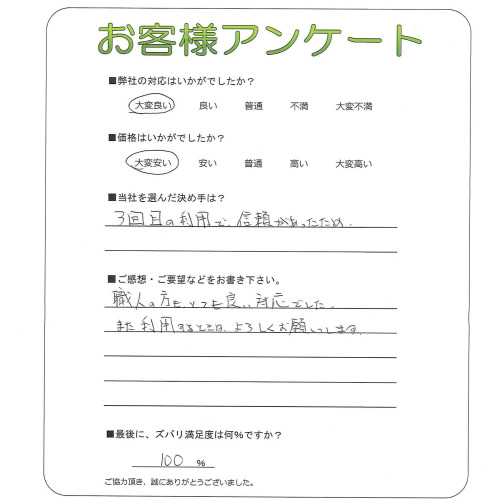 お客様アンケート
■弊社の対応はいかがでしたか？
大変良い 良い 普通 不満 大変不満
■価格はいかがでしたか？
大変安い 安い 普通 高い 大変高い
■当社を選んだ決め手は？
3回目の利用で、信頼があったため.
■ご感想・ご要望などをお書き下さい。
職人の方も、とても良い対応でした.
また利用するときは、よろしくお願いします.
■最後に、ズバリ満足度は何%ですか？
100 %
ご協力頂き、誠にありがとうございました。